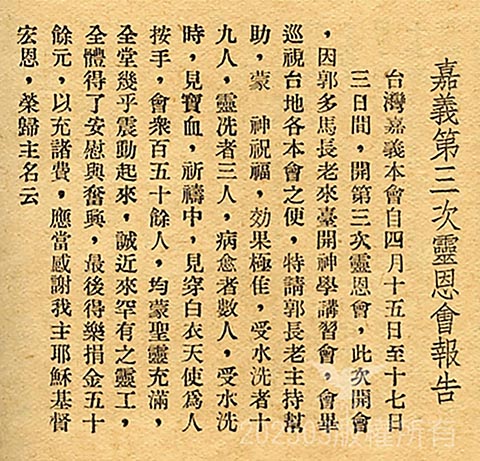 嘉義第三次靈恩會報告
台灣嘉義本會自四月十五日至十七日
三日間，開第三次靈恩會，此次開會
，因郭多馬長老來臺開神學講習會，會畢
巡視台地各本會之便，特請郭長老主持幫
助，蒙　神祝福，效果極佳，受水洗者十
九人，靈洗者三人，病愈者數人，受水洗
時，見寶血，祈禱中，見穿白衣天使為人
按手，會衆百五十餘人，均蒙聖靈充滿，
全堂幾乎震動起來，誠近來罕有之靈工，
全體得了安慰與奮興，最後得樂捐金五十
餘元，以充諸費，應當感謝我主耶穌基督
宏恩，榮歸主名云
202503版權所有